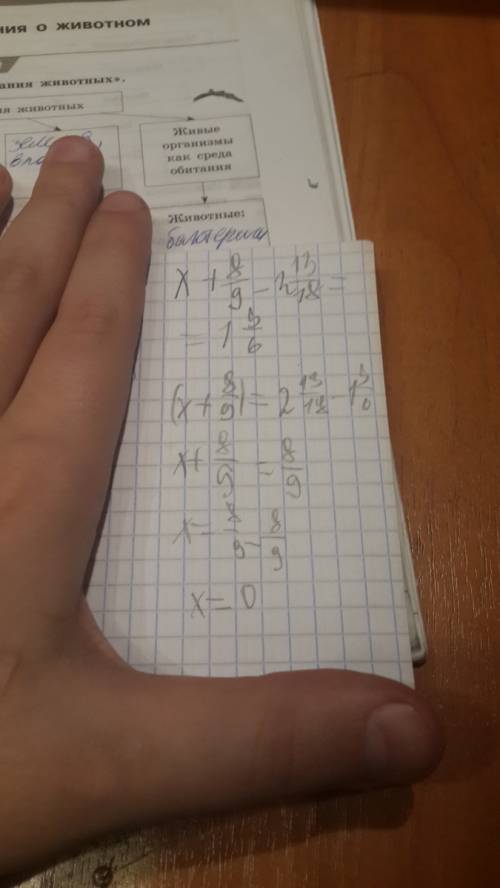 ния о животном
ания животных».
ия животных
Живые
организмы
как среда
обитания
Животные:
бактерии
x + 8/9 - 2 13/18 =
= 1 5/6
(x + 8/9) = 2 13/18 - 1 5/6
x + 8/9 = 8/9
x = 8/9 - 8/9
x = 0